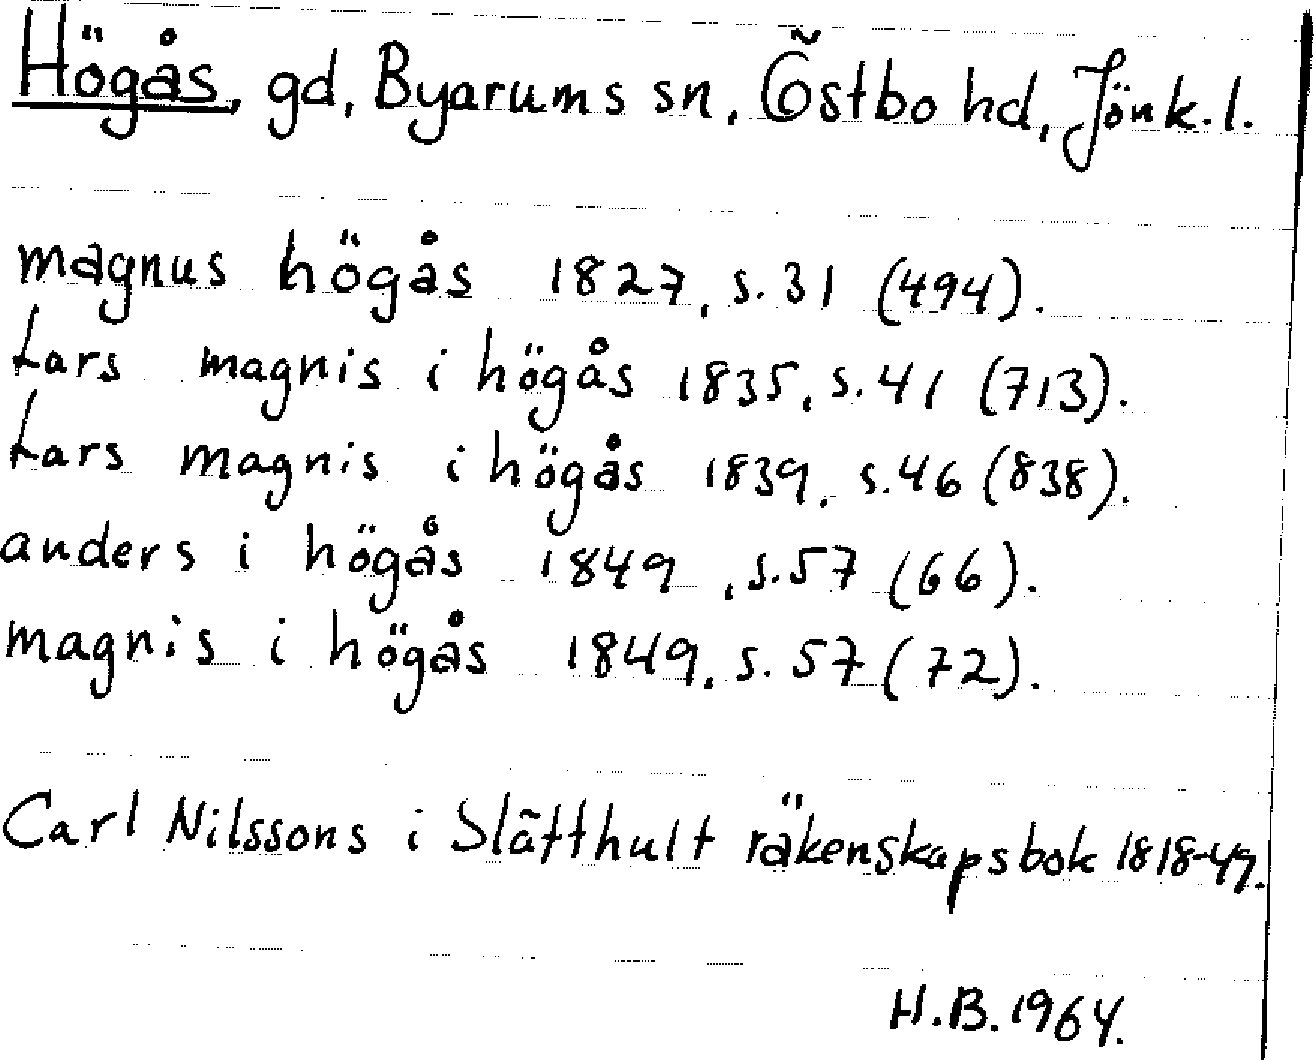 Högås, gd, Byarums sn, Östbo hd, Jönk. l.
magnus högås 1827, s. 31 (494).
Lars magnis i högås 1835, s. 41 (713).
Lars magnis i högås 1839, s. 46 (838).
anders i högås 1849, s. 57 (66).
magnis i högås 1849, s. 57 (72).
Carl Nilssons i Slätthult räkenskapsbok 1818-49.
H.B. 1964.